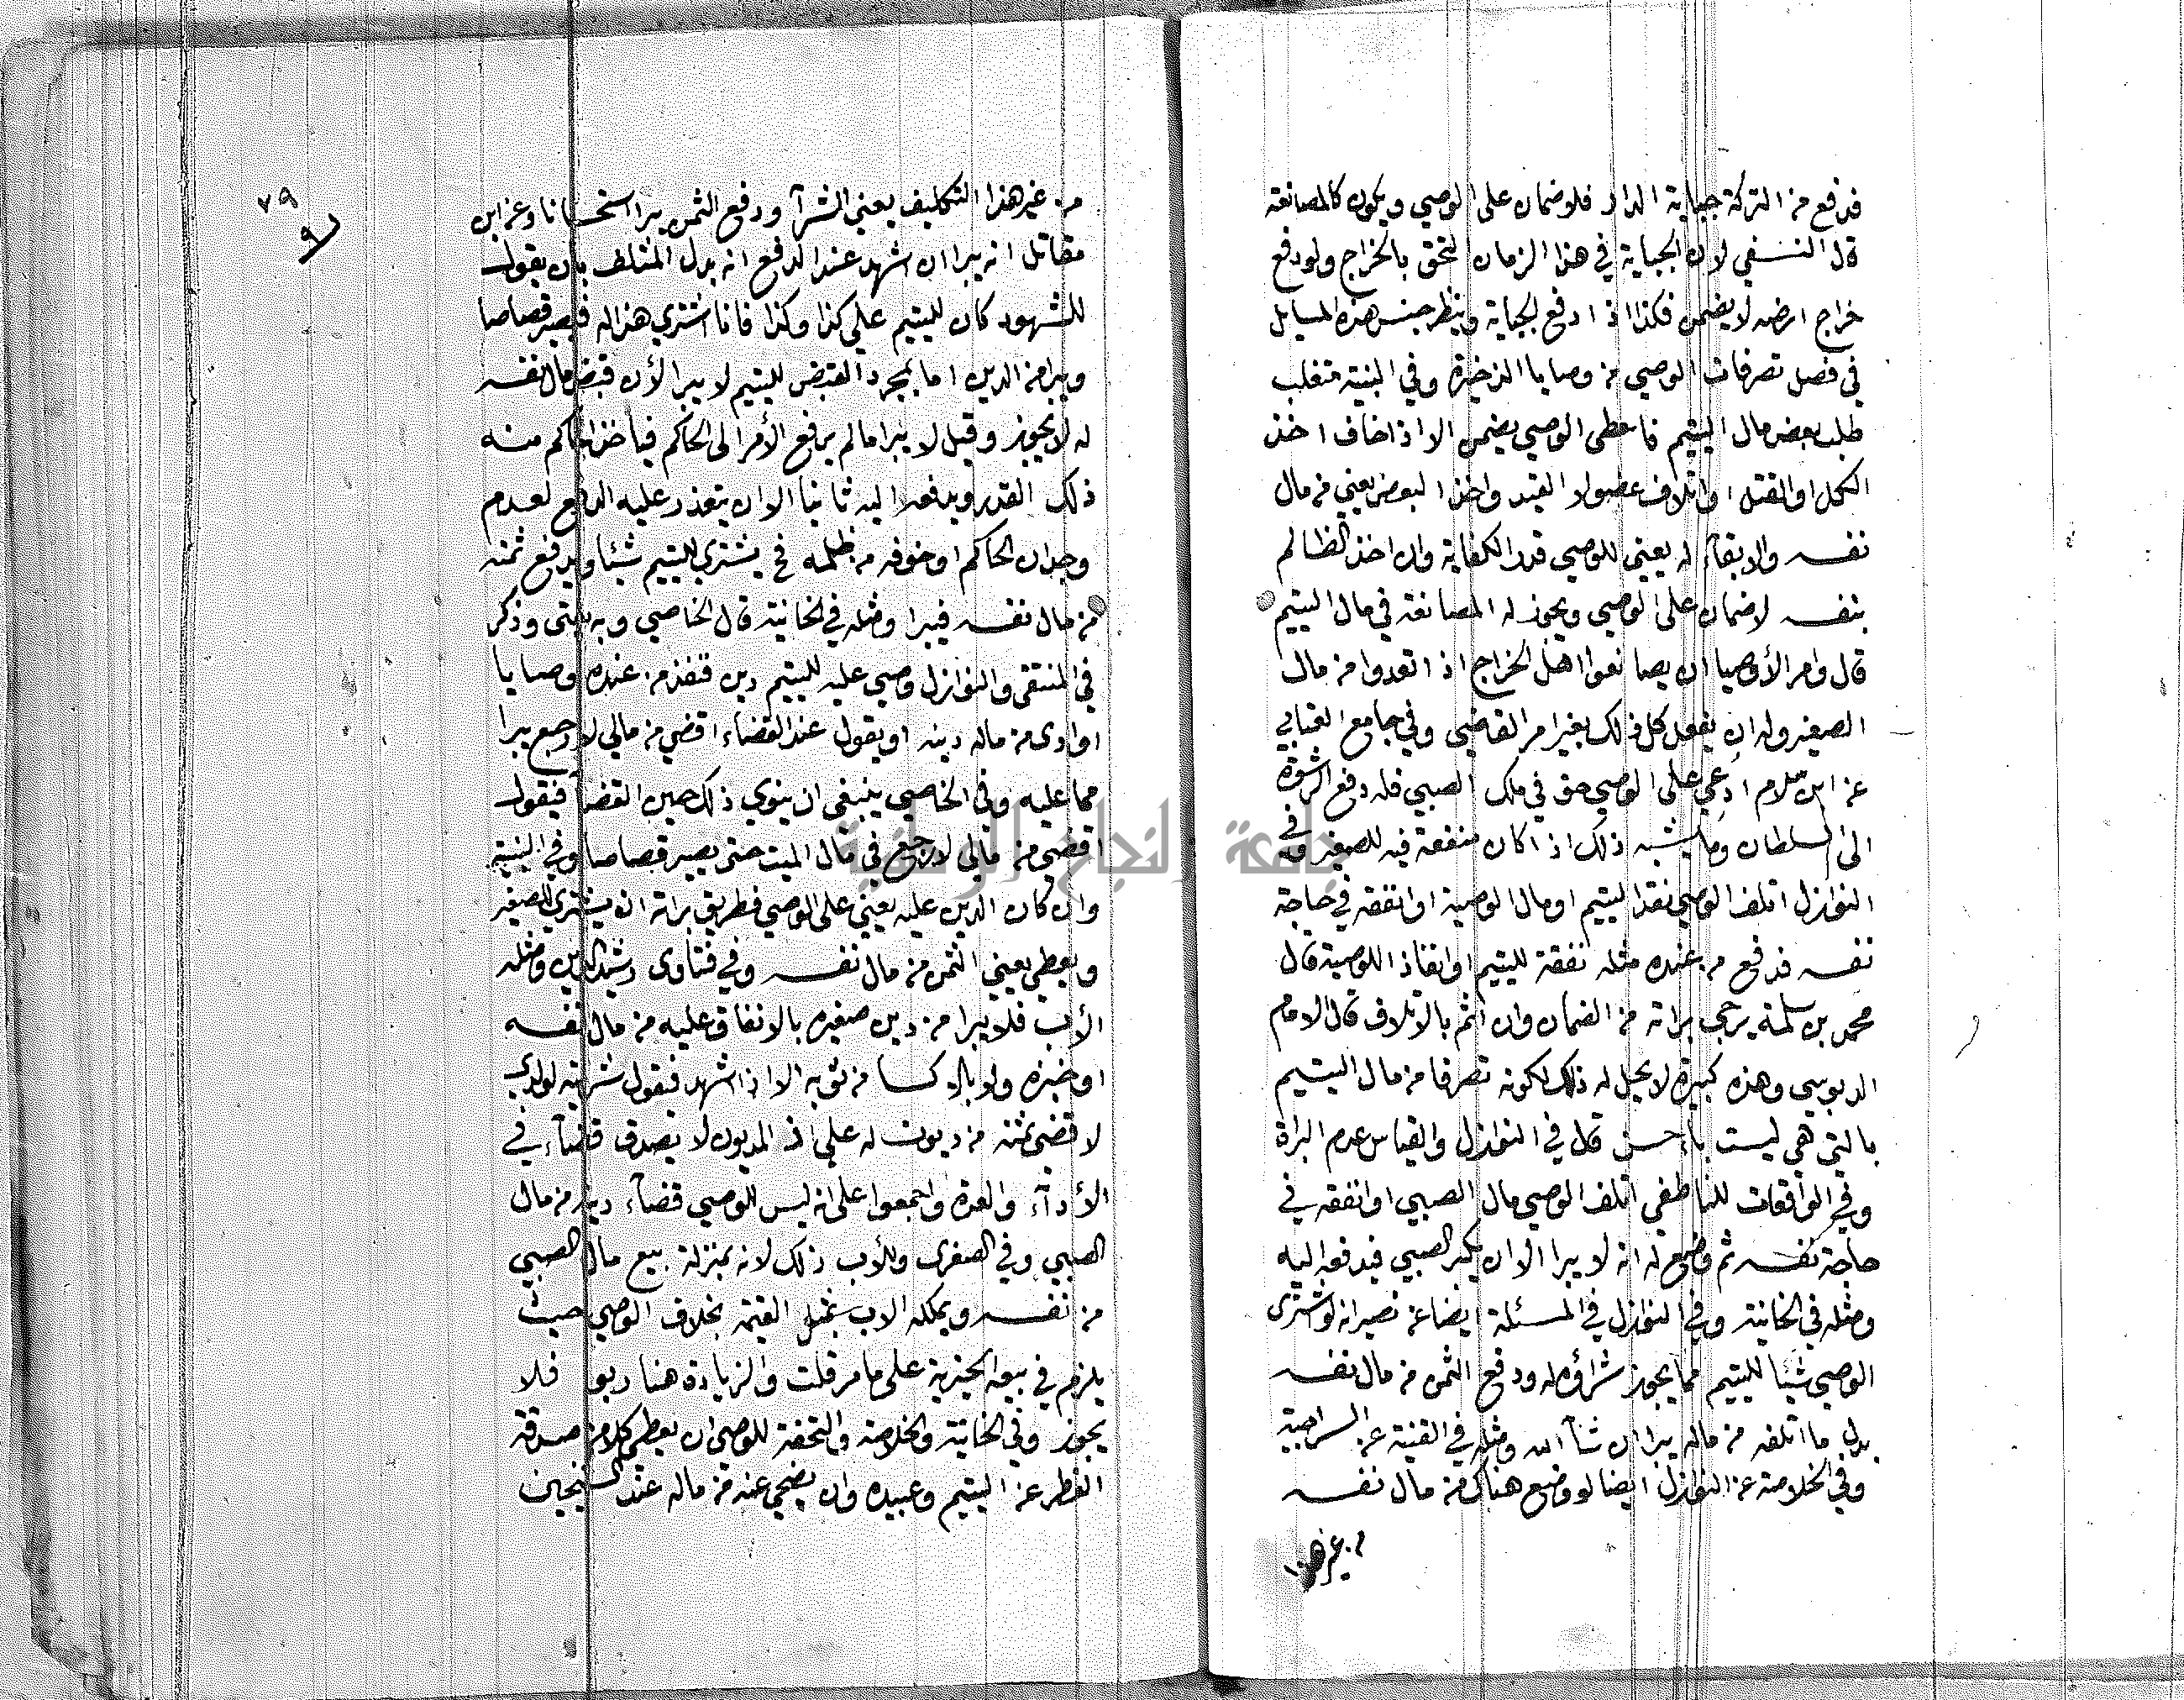 فدفع من التركة جباية الدار فلا ضمان على الوصي ويكون كالمصانعة
قال النسفي لان الجباية في هذا الزمان تلحق بالخراج ولو دفع
خراج ارضه لا يضمن فكذا اذا دفع الجباية وينظر جنس هذه المسايل
في فصل تصرفات الوصي من وصايا الذخيرة وفي المنية متغلب
طلب بعض مال اليتيم فاعطى الوصي يضمن الا اذا خاف اخذ
الكل او القتل او اتلاف عضو لا القيد واخذ البعض يعني من مال
نفسه والا بقاء له يعني للوصي قدر الكفاية وان اخذ الظالم
بنفسه لا ضمان على الوصي ويجوز له المصانعة في مال اليتيم
قال وامر الأوصيا ان يصانعوا اهل الخراج اذا تعدوا من مال
الصغير وله ان يفعل كل ذلك بغير امر القاضي وفي جامع العتابي
عن ابن سلام ادعي على الوصي حق في ملك الصبي فله دفع الرشوة
الى السلطان وما يشبه ذلك اذا كان منفعة فيه للصغير وفي
النوازل اتلف الوصي نقد اليتيم او مال الوصية او انفقه في حاجة
نفسه فدفع من عنده مثله نفقة لليتيم او انفاذا للوصية قال
محمد بن سلمة يرجى براته من الضمان وان اثم بالاتلاف قال الامام
الدبوسي وهذه كبيرة لا يحل له ذلك لكونه تصرفا من مال اليتيم
بالتي هي ليست باحسن قال في النوازل والقياس عدم البراة
وفي الواقعات للناطفي اتلف الوصي مال الصبي او انفقه في
حاجة نفسه ثم وضع له انه لا يبرا الا ان يكبر الصبي فيدفعه اليه
ومثله في الخانية وفي النوازل في المسئلة ايضا عن نصير انه لو شترى
الوصي شيئا لليتيم مما يجوز شراؤه له ودفع الثمن من مال نفسه
بدل ما اتلفه من ماله يبرا ان شآ الله ومثله في القنية عن السراجية
وفي الخلاصة عن النوازل ايضا لو وضع هناك من مال نفسه
من غير هذا
٧٩
من غير هذا التكليف يعني الشرآ ودفع الثمن يبرا استحسانا وعن ابن
مقاتل انه يبرا ان اشهد عند الدفع انه بدل المتلف بان يقول
للشهود كان لليتيم علي كذا وكذا فانا اشتري هذا له فيصير قصاصا
ويبرا من الدين اما بمجرد القبض لليتيم لا يبرا لأن قبض مال نفسه
له لا يجوز وقيل لا يبرا ما لم يرفع الأمر الى الحاكم فياخذ الحاكم منه
ذلك القدر ويدفعه اليه ثانيا الا ان يتعذر عليه الدفع لعدم
وجدان الحاكم او خوفه من ظلمه فح يشتري لليتيم شيئا ويدفع ثمنه
من مال نفسه فيبرا ومثله في الخانية قال الخاصي وبه يفتى وذكر
في المنتقى والنوازل وصي عليه لليتيم دين فنفذ من عنده وصايا
او ادى من ماله دينه او يقول عند القضاء اقضي من مالي لارجع يبرا
مما عليه وفي الخاصي ينبغي ان ينوي ذلك حين القضآ فيقول
اقضي من مالي لارجع في مال الميت حتى يصير قصاصا وفي اليتيم
وان كان الدين عليه يعني على الوصي فطريق براته ان يشتري للصغير
ويعطي يعني الثمن من مال نفسه وفي فتاوى رشيد الدين ومثله
الأب فلا يبرا من دين صغيره بالانفاق عليه من مال نفسه
او خبزه ولا بالكسا من ثوبه الا اذا اشهد فيقول شريته لولدي
لاقضي ثمنه من ديون له علي اذ المديون لا يصدق قضآء في
الأدآء والعدة واجمعوا على انه ليس للوصي قضآء دينه من مال
الصبي وفي الصغرى وللأب ذلك لانه بمنزلة بيع مال الصبي
من نفسه ويملكه الاب بمثل القيمة بخلاف الوصي حيث
يلزم في بيعه الخيرية على ما مر قلت والزيادة هنا ربو فلا
يجوز وفي الخانية والخلاصة والتحفة للوصي ان يعطي كلا من صدقة
الفطر عن اليتيم وعبيده وان يضحي عنه من ماله عند الشيخين
جامعة النجاح الوطنية